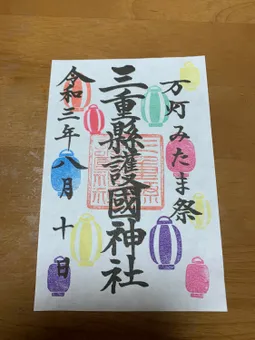 万灯みたま祭
三重縣護國神社
令和三年八月十日